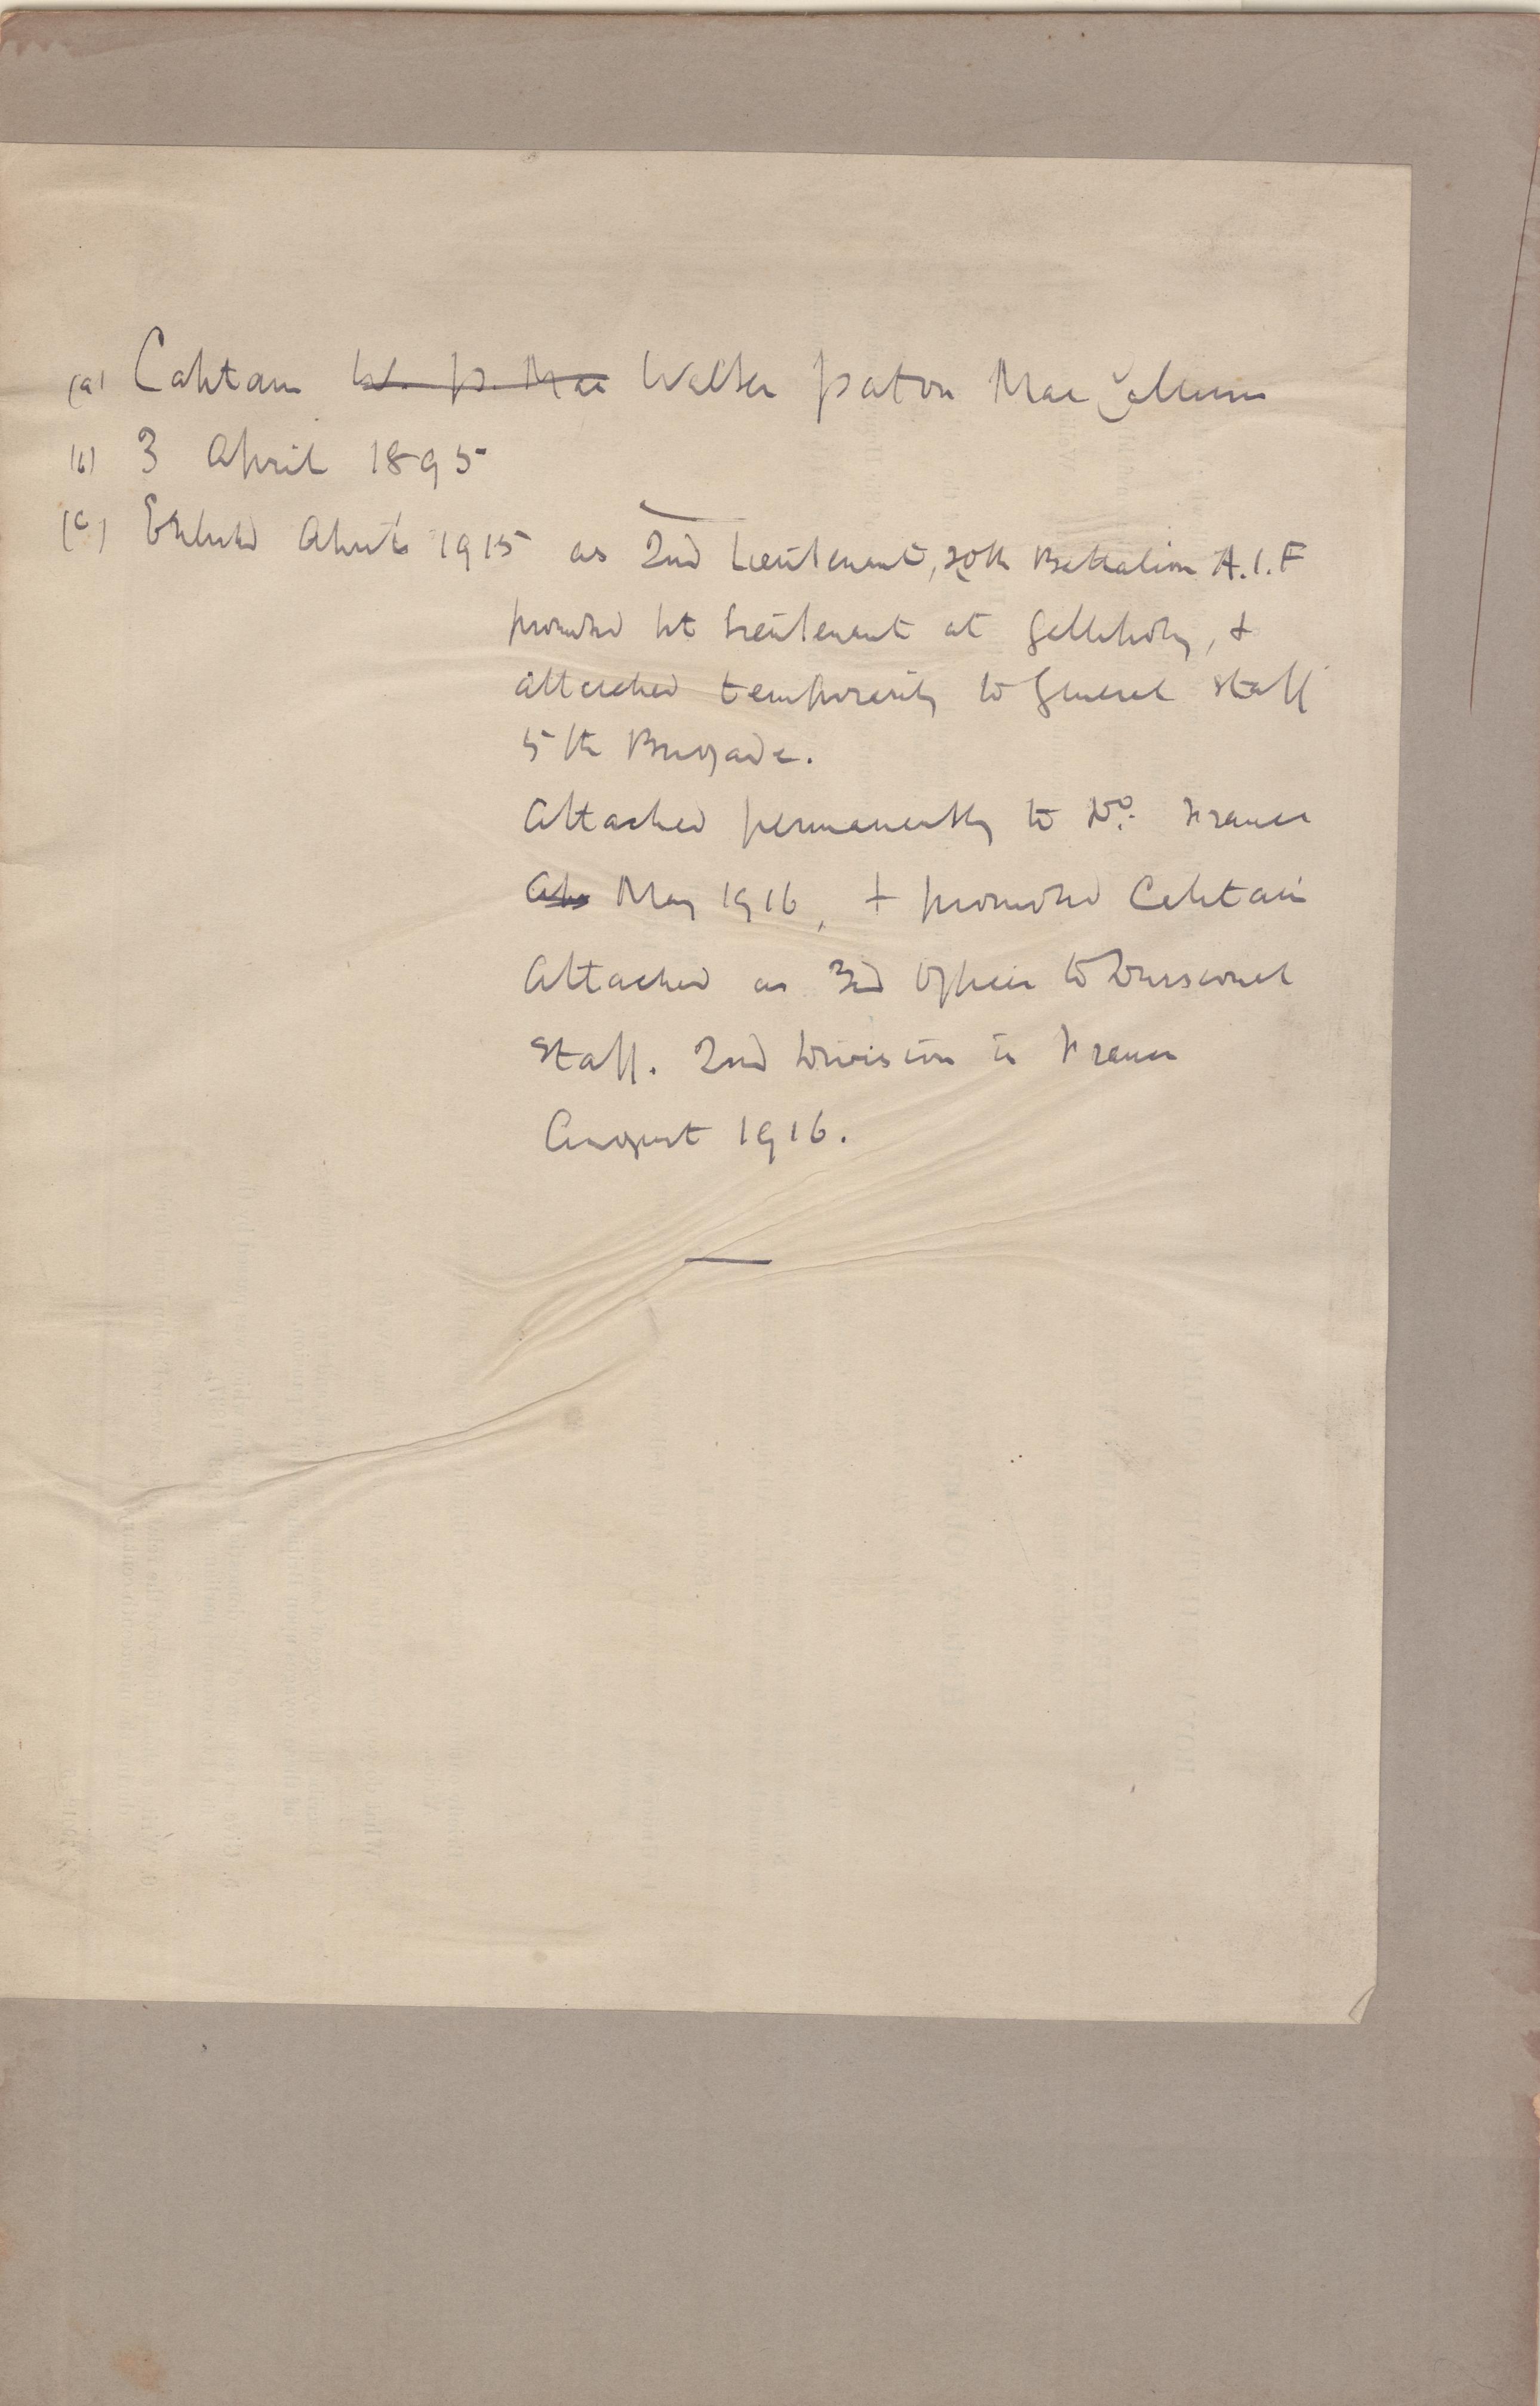 (a) Captain W. P. Mac Walter Paton MacCallum
(b) 3 April 1895
(c) Enlisted April 1915 as 2nd Lieutenant, 20th Battalion A.I.F
promoted 1st Lieutenant at Gallipoli, &
attached temporarily to General Staff
5th Brigade.
Attached permanently to Do. France
Ap May 1916, & promoted Captain
Attached as 3rd Officer to Divisional
Staff. 2nd Division in France
August 1916.